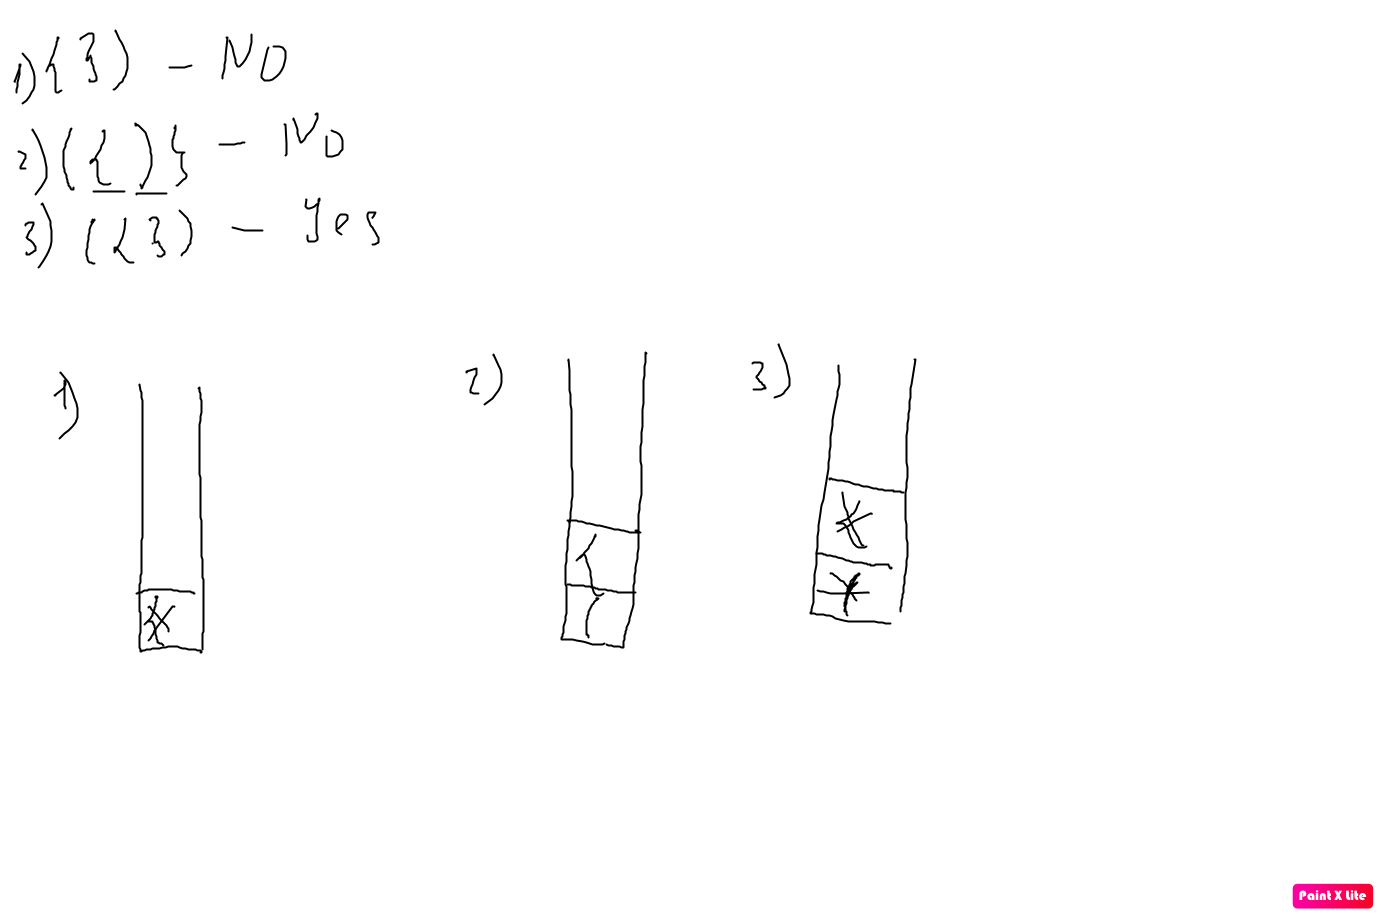 1) { } ) - NO
2) ( { ) } - NO
3) ( { } ) - Yes
1)
2)
3)
{
{
(
Paint X Lite